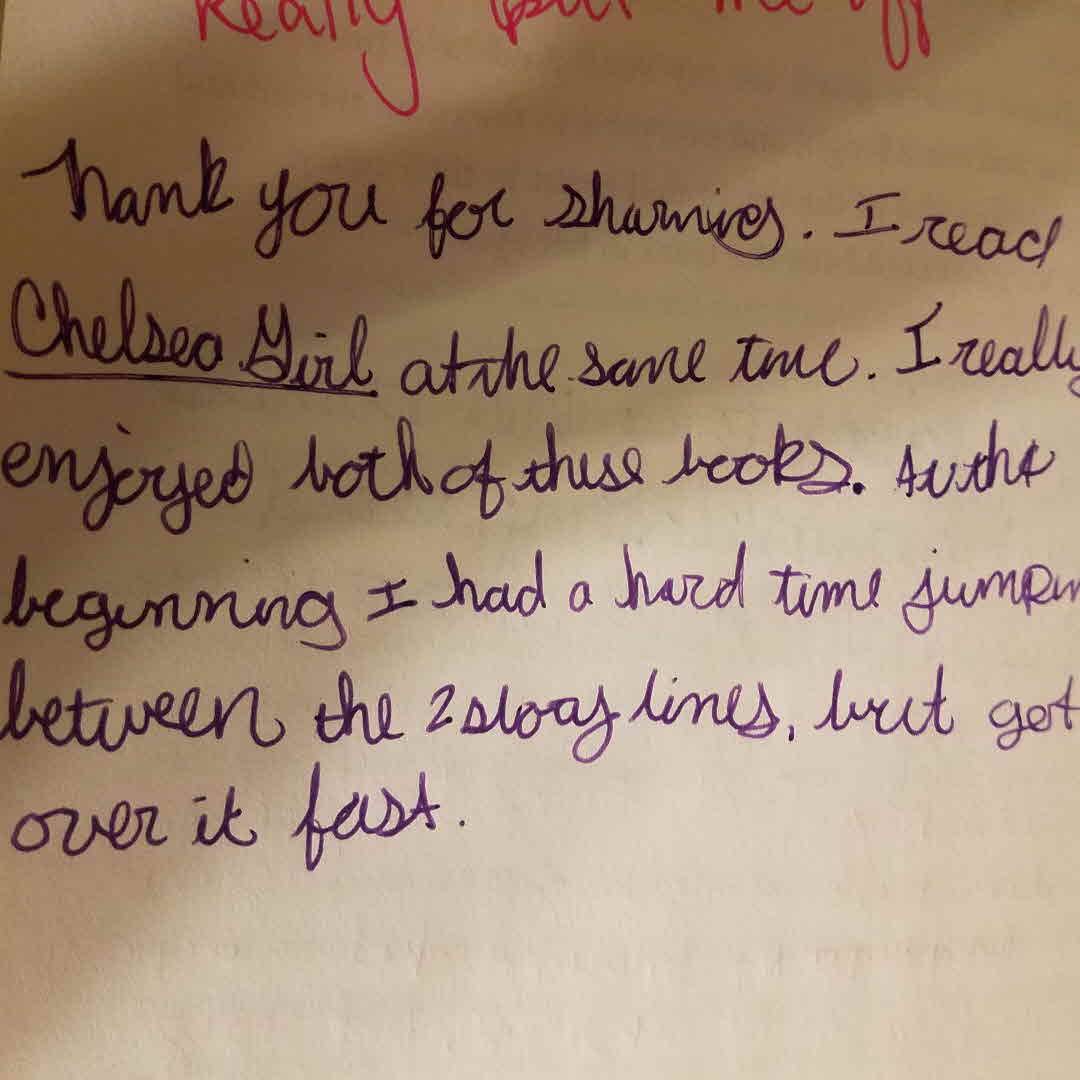 Really put me off
Thank you for sharing. I read
Chelsea Girl at the same time. I really
enjoyed both of these books. At the
beginning I had a hard time jumpin
between the 2 story lines, but got
over it fast.